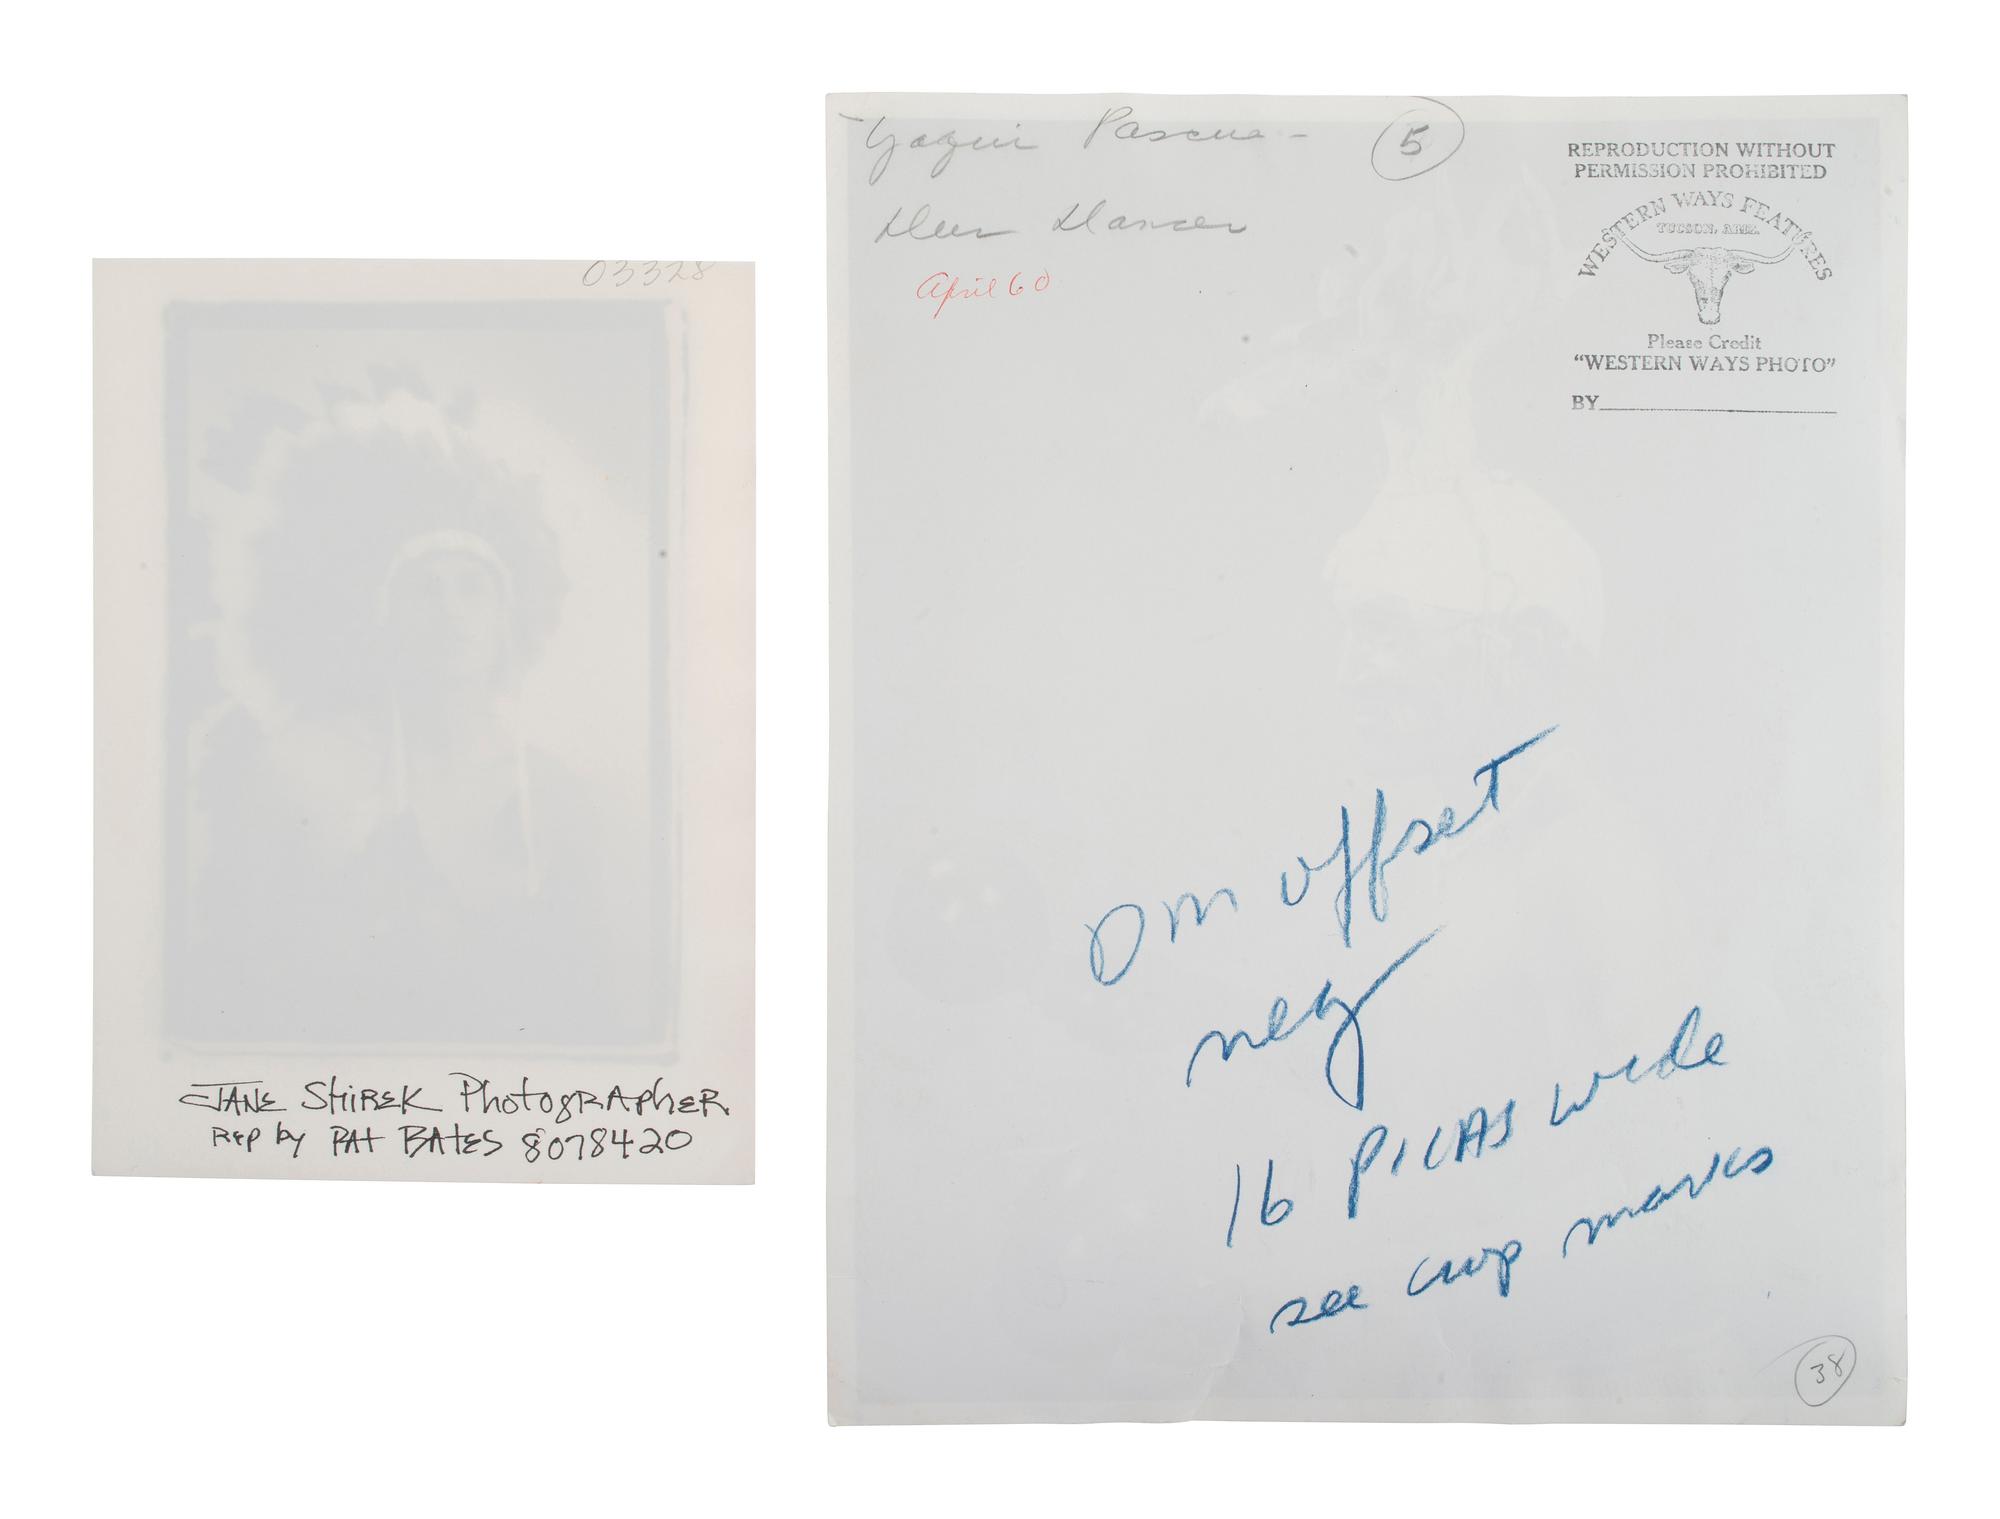 03328
JANE SHIREK PhotogRAPhER
REP by PAt BAtES 8078420
Yaqui Pascua - 5
Deer Dancer
April 60
REPRODUCTION WITHOUT
PERMISSION PROHIBITED
WESTERN WAYS FEATURES
TUCSON, ARIZ.
Please Credit
"WESTERN WAYS PHOTO"
BY
Dm offset
neg
16 PICAS wide
see crop marks
38